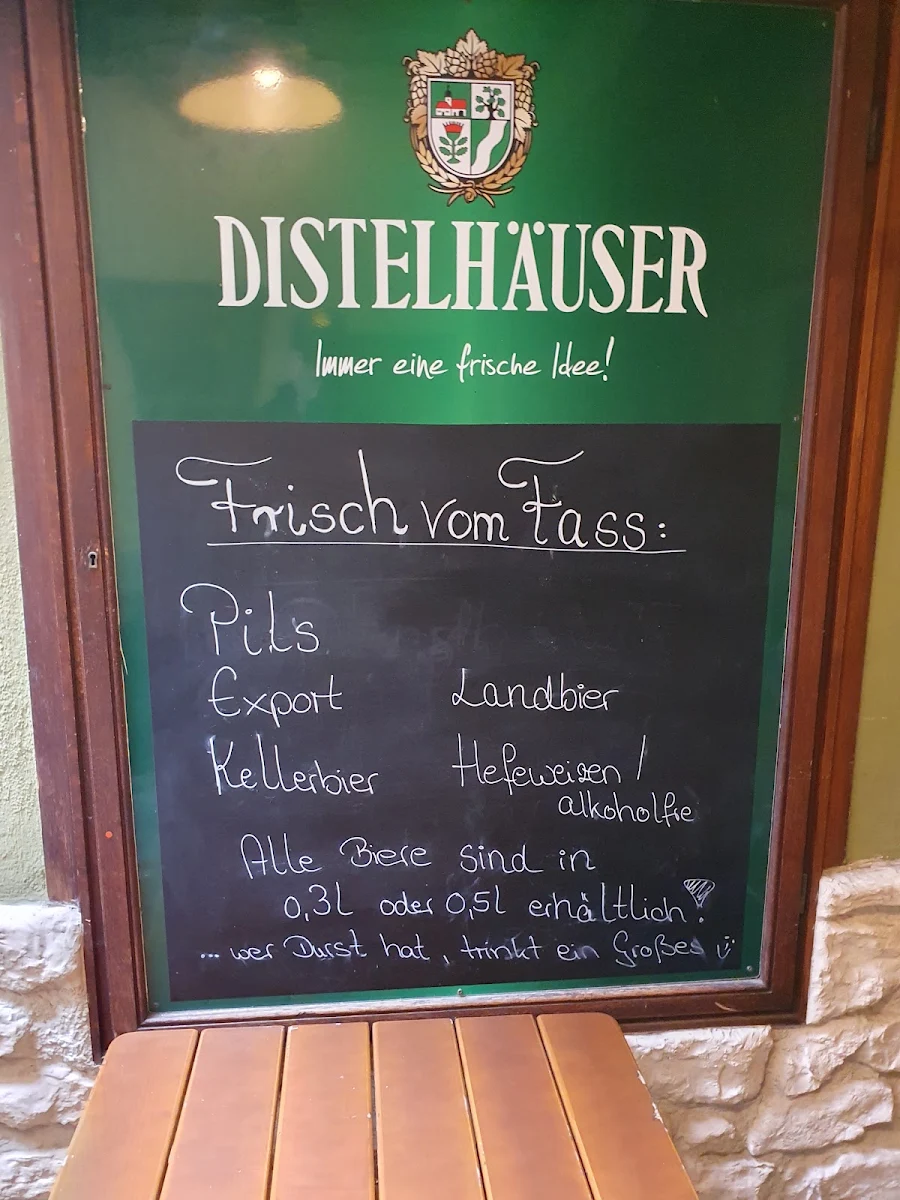 DISTELHÄUSER
Immer eine frische Idee!
Frisch vom Fass:
Pils
Export Landbier
Kellerbier Hefeweizen /
alkoholfre
Alle Biere sind in
0,3l oder 0,5l erhältlich!
... wer Durst hat, trinkt ein Großes